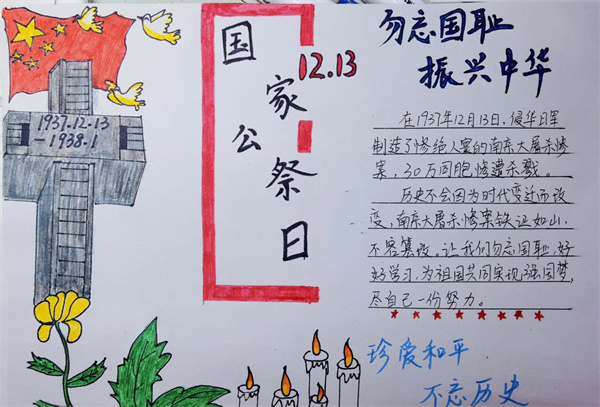 1937.12.13
-1938.1
国家公祭日
12.13
勿忘国耻
振兴中华
在1937年12月13日、侵华日军
制造了惨绝人寰的南京大屠杀惨
案,30万同胞惨遭杀戮。
历史不会因为时代变迁而改
变,南京大屠杀惨案铁证如山,
不容篡改。让我们勿忘国耻,好
好学习,为祖国共同实现强国梦,
尽自己一份努力。
珍爱和平
不忘历史